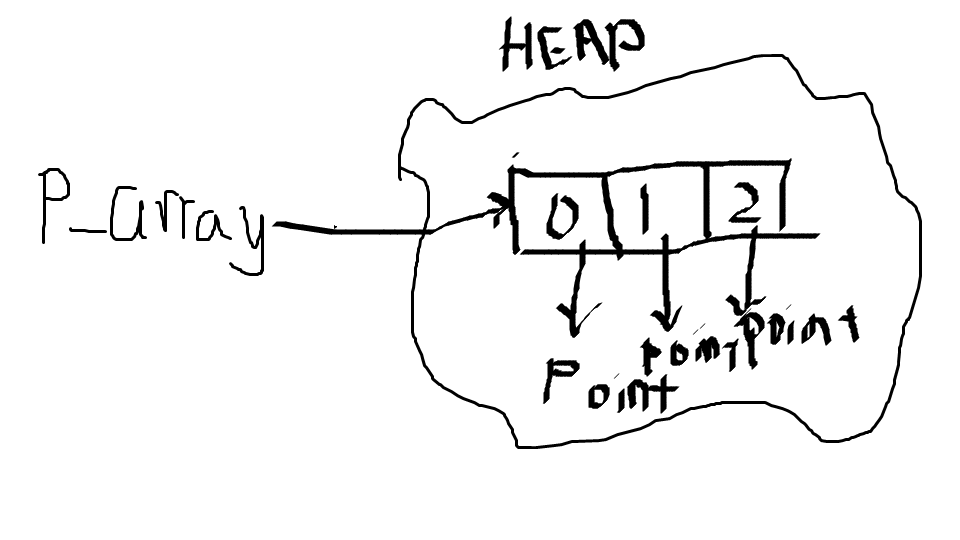 HEAP
P_array
0 1 2
Point point point